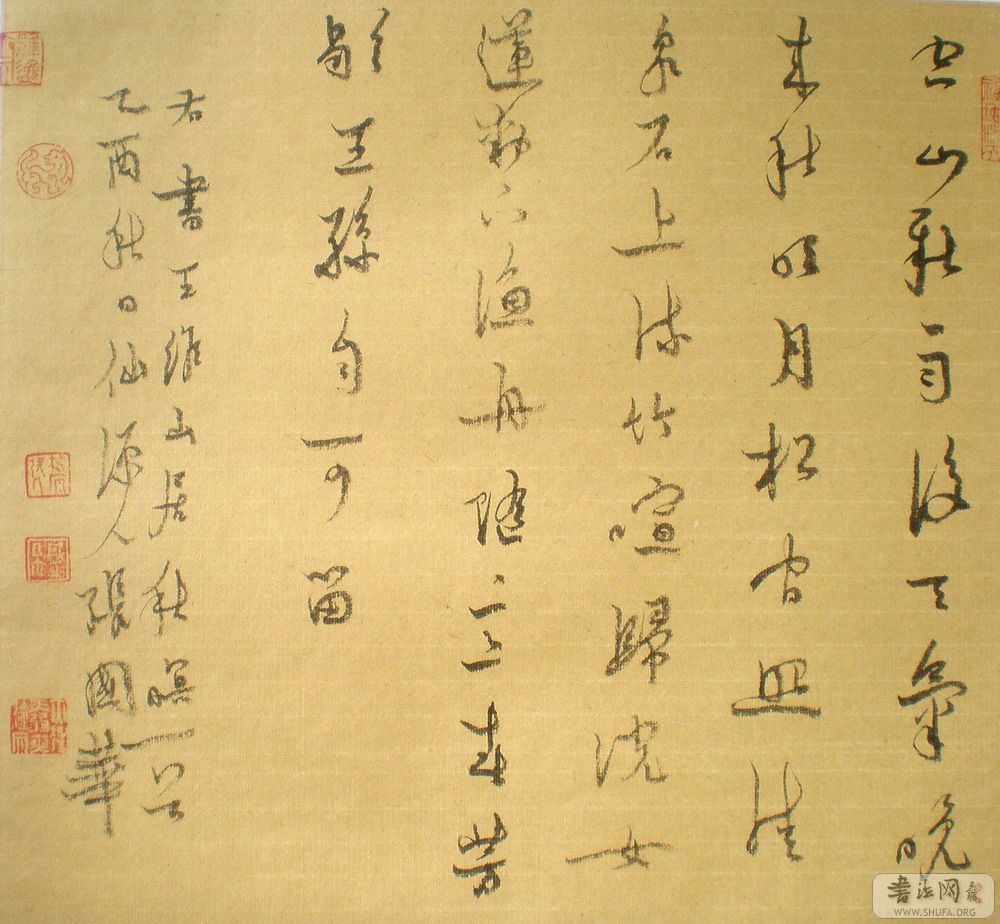 空山新雨後天氣晚
来秋明月松間照清
泉石上流竹喧歸浣女
蓮動下漁舟隨意春芳
歇王孫自可留
右書王維山居秋暝一首
乙酉秋日仙源人張國華
書法网
WWW.SHUFA.ORG